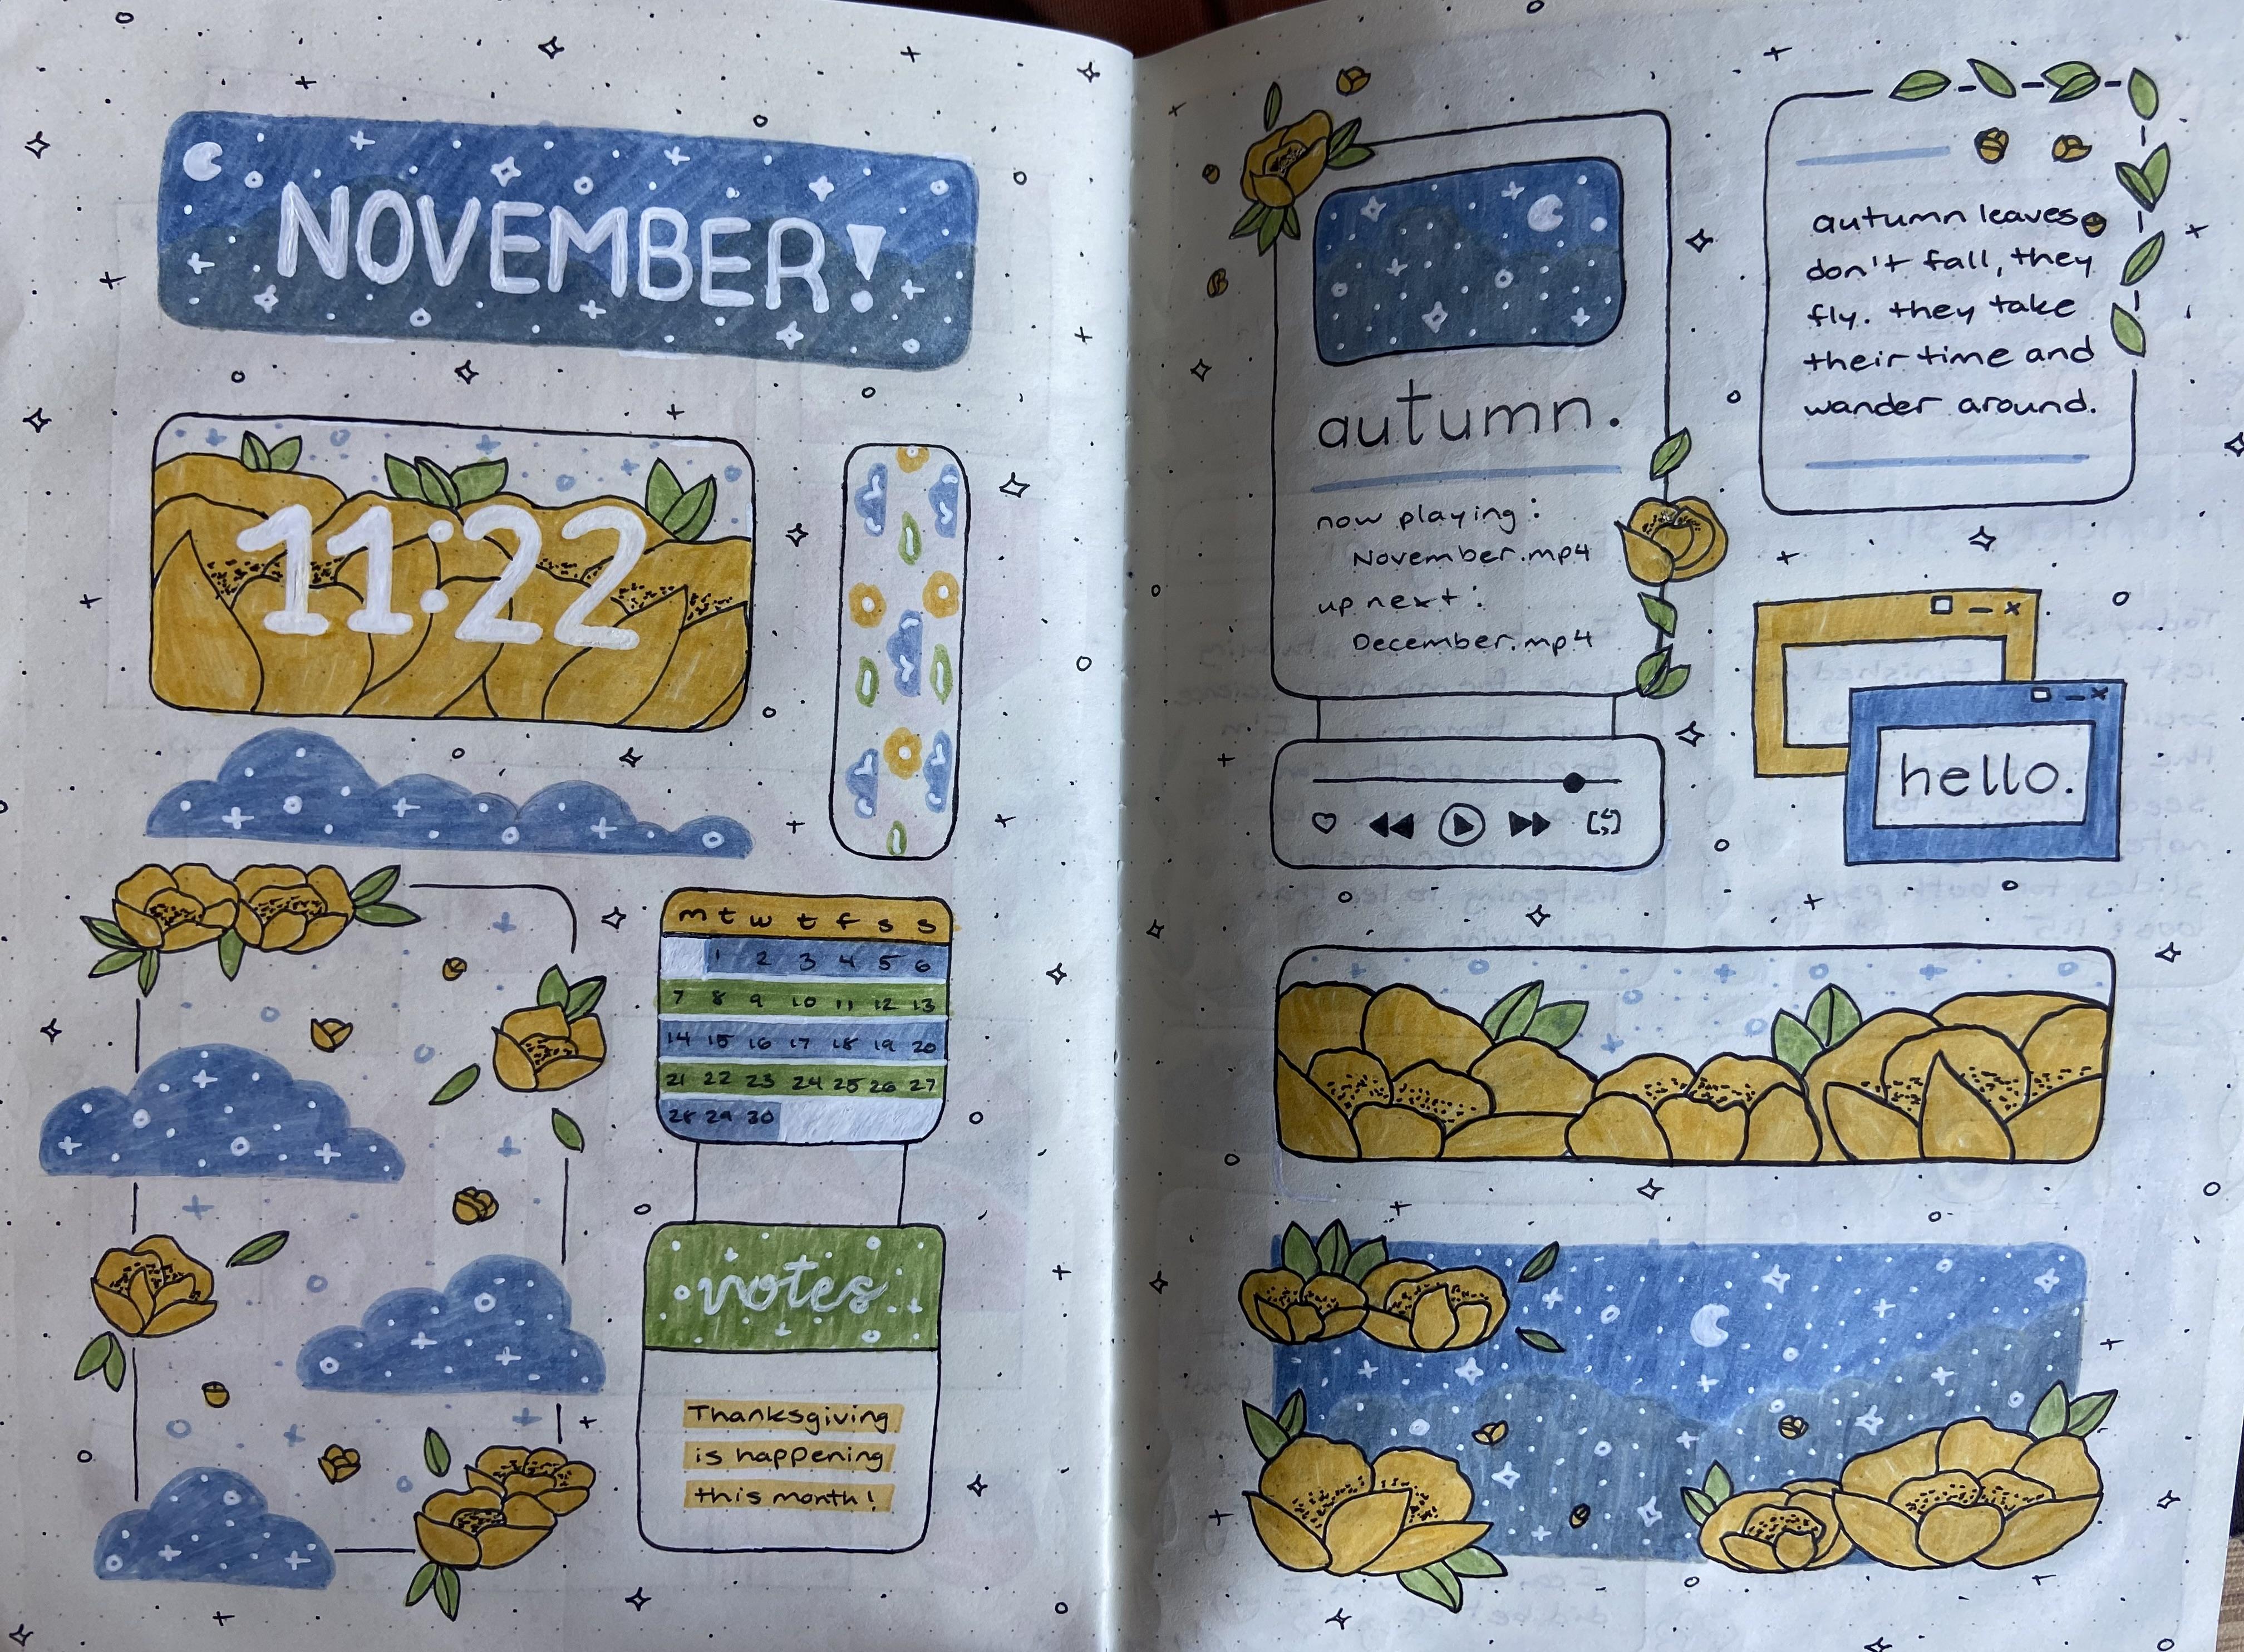 NOVEMBER!
11:22
m t w t f s s
1 2 3 4 5 6
7 8 9 10 11 12 13
14 15 16 17 18 19 20
21 22 23 24 25 26 27
28 29 30
notes
Thanksgiving
is happening
this month!
autumn.
now playing:
November.mp4
up next:
December.mp4
autumn leaves
don't fall, they
fly. they take
their time and
wander around.
hello.